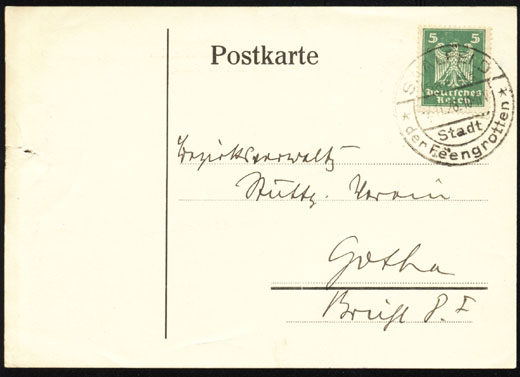 Postkarte
5 5
Deutsches
Reich
Stadt
* der Feengrotten *
Bezirksverwaltg
Stuttg. Verein
Gotha
Brühl 8. I